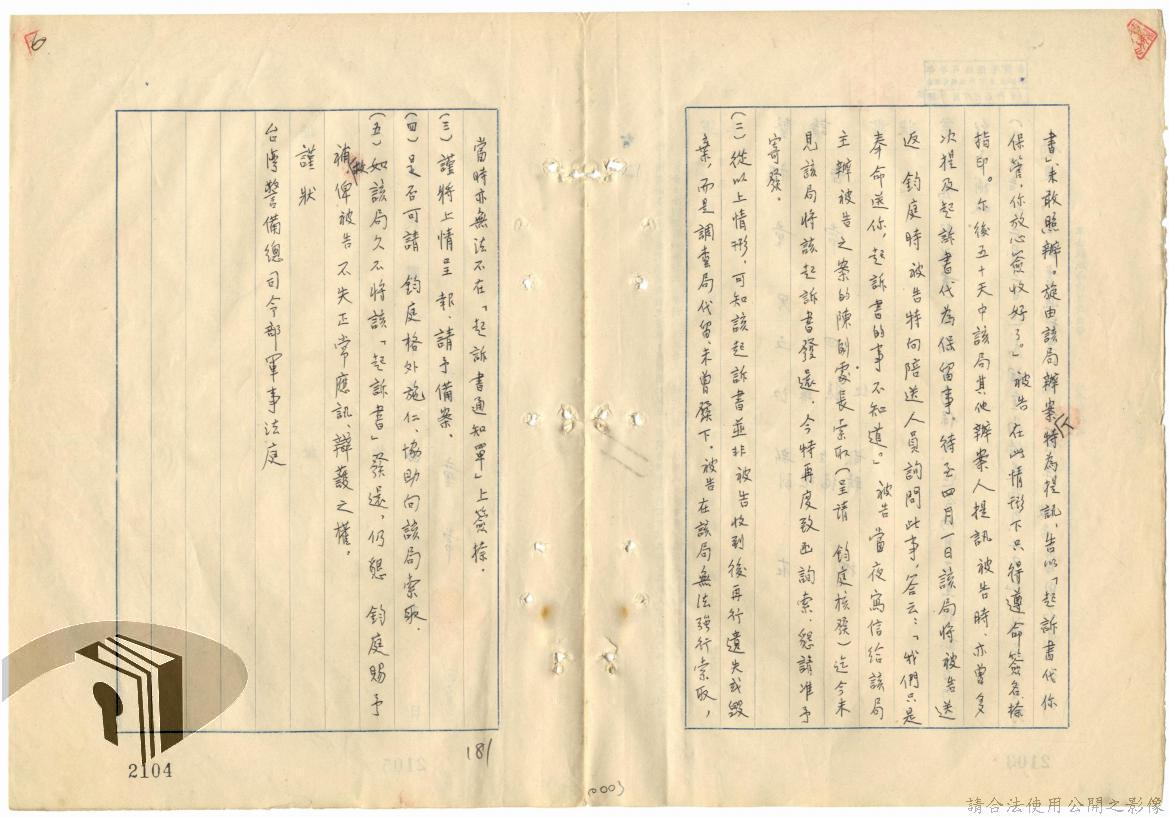 書」未敢照辦。旋由該局辦案人特為提訊，告以「起訴書代你
保管，你放心簽收好了。」被告在此情形下只得遵命簽名捺
指印。尔後五十天中該局其他辦案人提訊被告時，亦曾多
次提及起訴書代為保留事，待至四月一日該局將被告送
返 鈞庭時被告特向陪送人員詢問此事，答云：「我們只是
奉命送你，起訴書的事不知道。」被告當夜寫信給該局
主辦被告之案的陳副處長索取（呈請 鈞庭核發）迄今未
見該局將該起訴書發還，今特再度致函詢索，懇請准予
寄發。
(二)從以上情形，可知該起訴書並非被告收到後再行遺失或毀
棄，而是調查局代留，未曾發下，被告在該局無法強行索取，
當時亦無法不在「起訴書通知單」上簽捺。
(三)謹將上情呈報，請予備案。
(四)是否可請 鈞庭格外施仁，協助向該局索取。
(五)如該局久不將該「起訴書」發還，仍懇 鈞庭賜予
補救俾被告不失正常應訊、辯護之權。
謹狀
台灣警備總司令部軍事法庭
6
181
0003
2104
請合法使用公開之影像